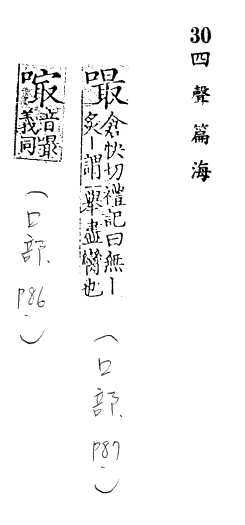 30 四聲篇海
嘬 倉快切禮記曰無丨
炙丨謂一舉盡臠也
(口部. P87)
音最
義同
(口部. P86)